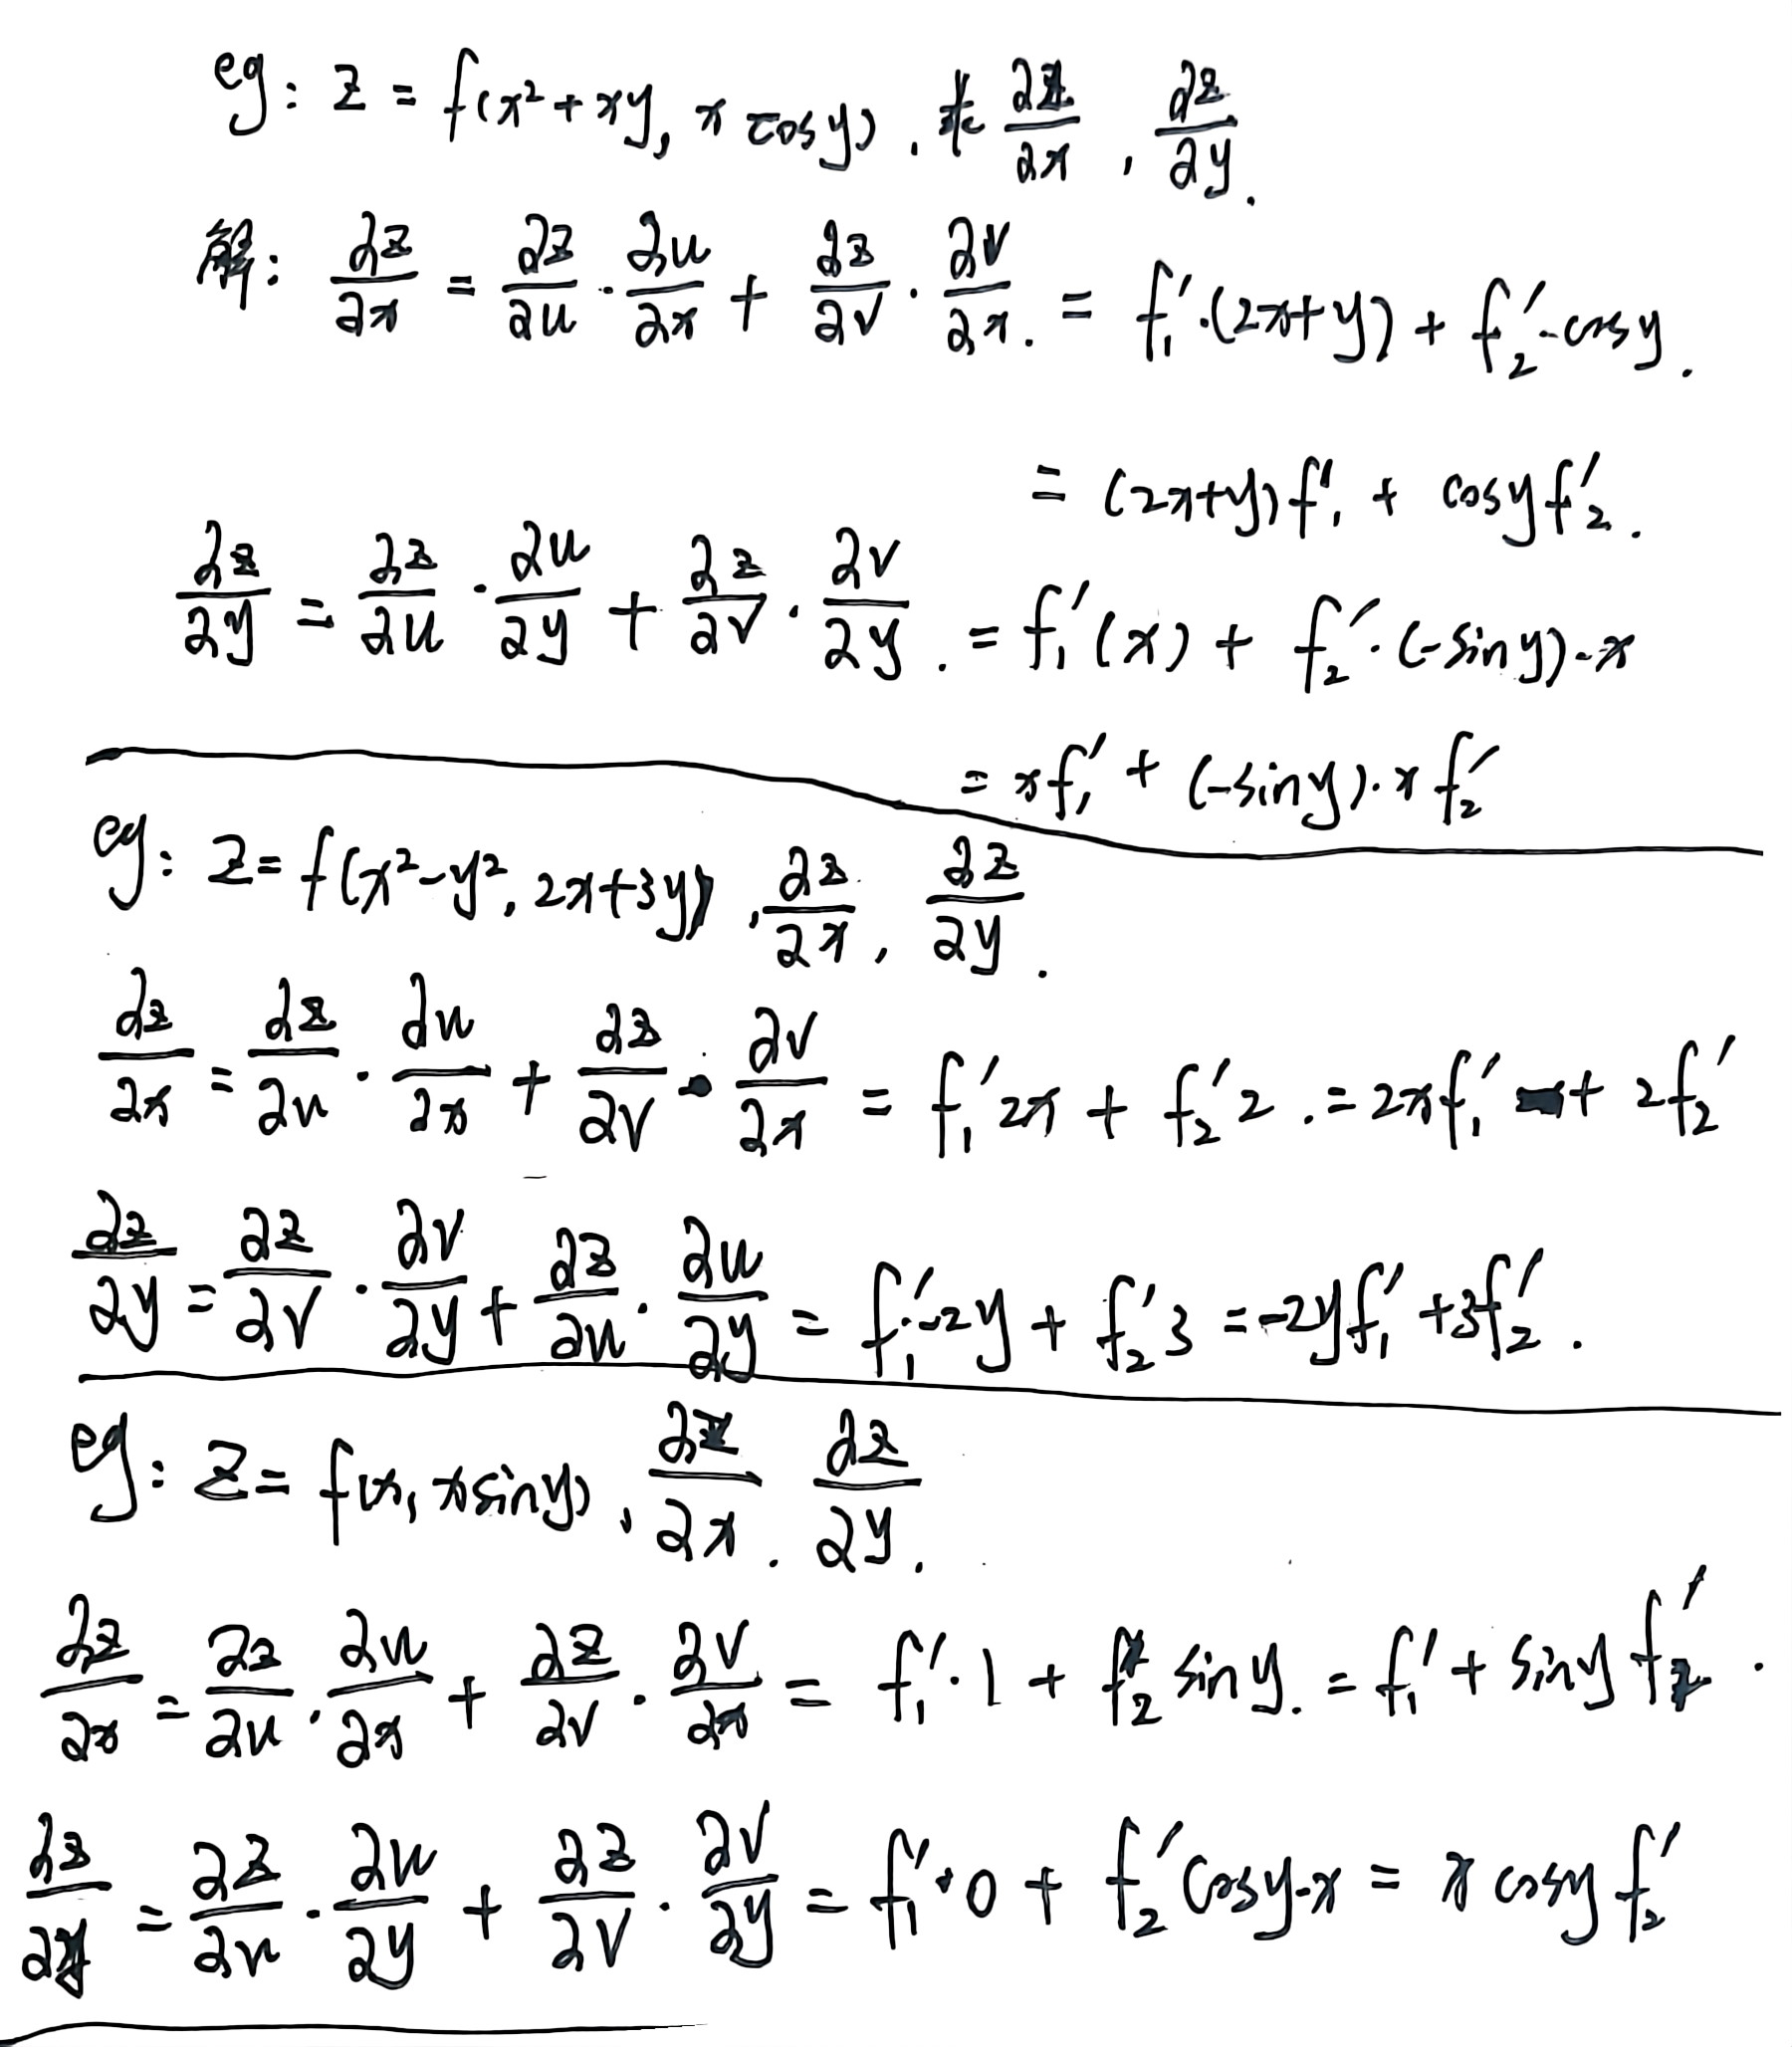 eg: z = f(x²+xy, x cosy), 求 ∂z/∂x, ∂z/∂y.
解: ∂z/∂x = ∂z/∂u · ∂u/∂x + ∂z/∂v · ∂v/∂x. = f₁′·(2x+y) + f₂′·cosy.
= (2x+y)f₁′ + cosyf₂′.
∂z/∂y = ∂z/∂u · ∂u/∂y + ∂z/∂v · ∂v/∂y. = f₁′(x) + f₂′·(-siny)·x
= xf₁′ + (-siny)·x f₂′
eg: z = f(x²-y², 2x+3y), ∂z/∂x, ∂z/∂y.
∂z/∂x = ∂z/∂u · ∂u/∂x + ∂z/∂v · ∂v/∂x = f₁′2x + f₂′2. = 2xf₁′ + 2f₂′
∂z/∂y = ∂z/∂v · ∂v/∂y + ∂z/∂u · ∂u/∂y = f₁′·-2y + f₂′3 = -2yf₁′ + 3f₂′.
eg: z = f(x, xsiny), ∂z/∂x. ∂z/∂y.
∂z/∂x = ∂z/∂u · ∂u/∂x + ∂z/∂v · ∂v/∂x = f₁′·1 + f₂′ siny. = f₁′ + siny f₂′.
∂z/∂y = ∂z/∂u · ∂u/∂y + ∂z/∂v · ∂v/∂y = f₁′·0 + f₂′ cosy·x = x cosy f₂′